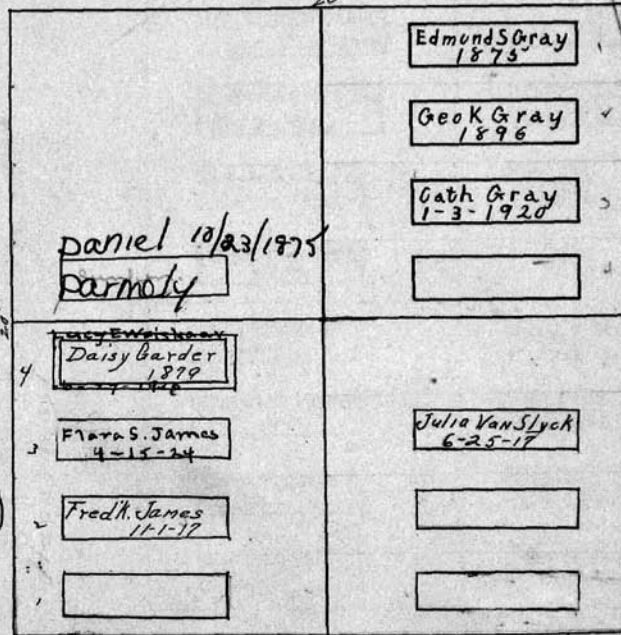 20
Edmund S Gray
1875
Geo K Gray
1896
Cath Gray
1-3-1920
Daniel 10/23/1875
Darmoly
20
4
Daisy Garder
1879
3
Flara S. James
4-15-24
2
Fred'k. James
11-1-17
Julia Van Slyck
6-25-17